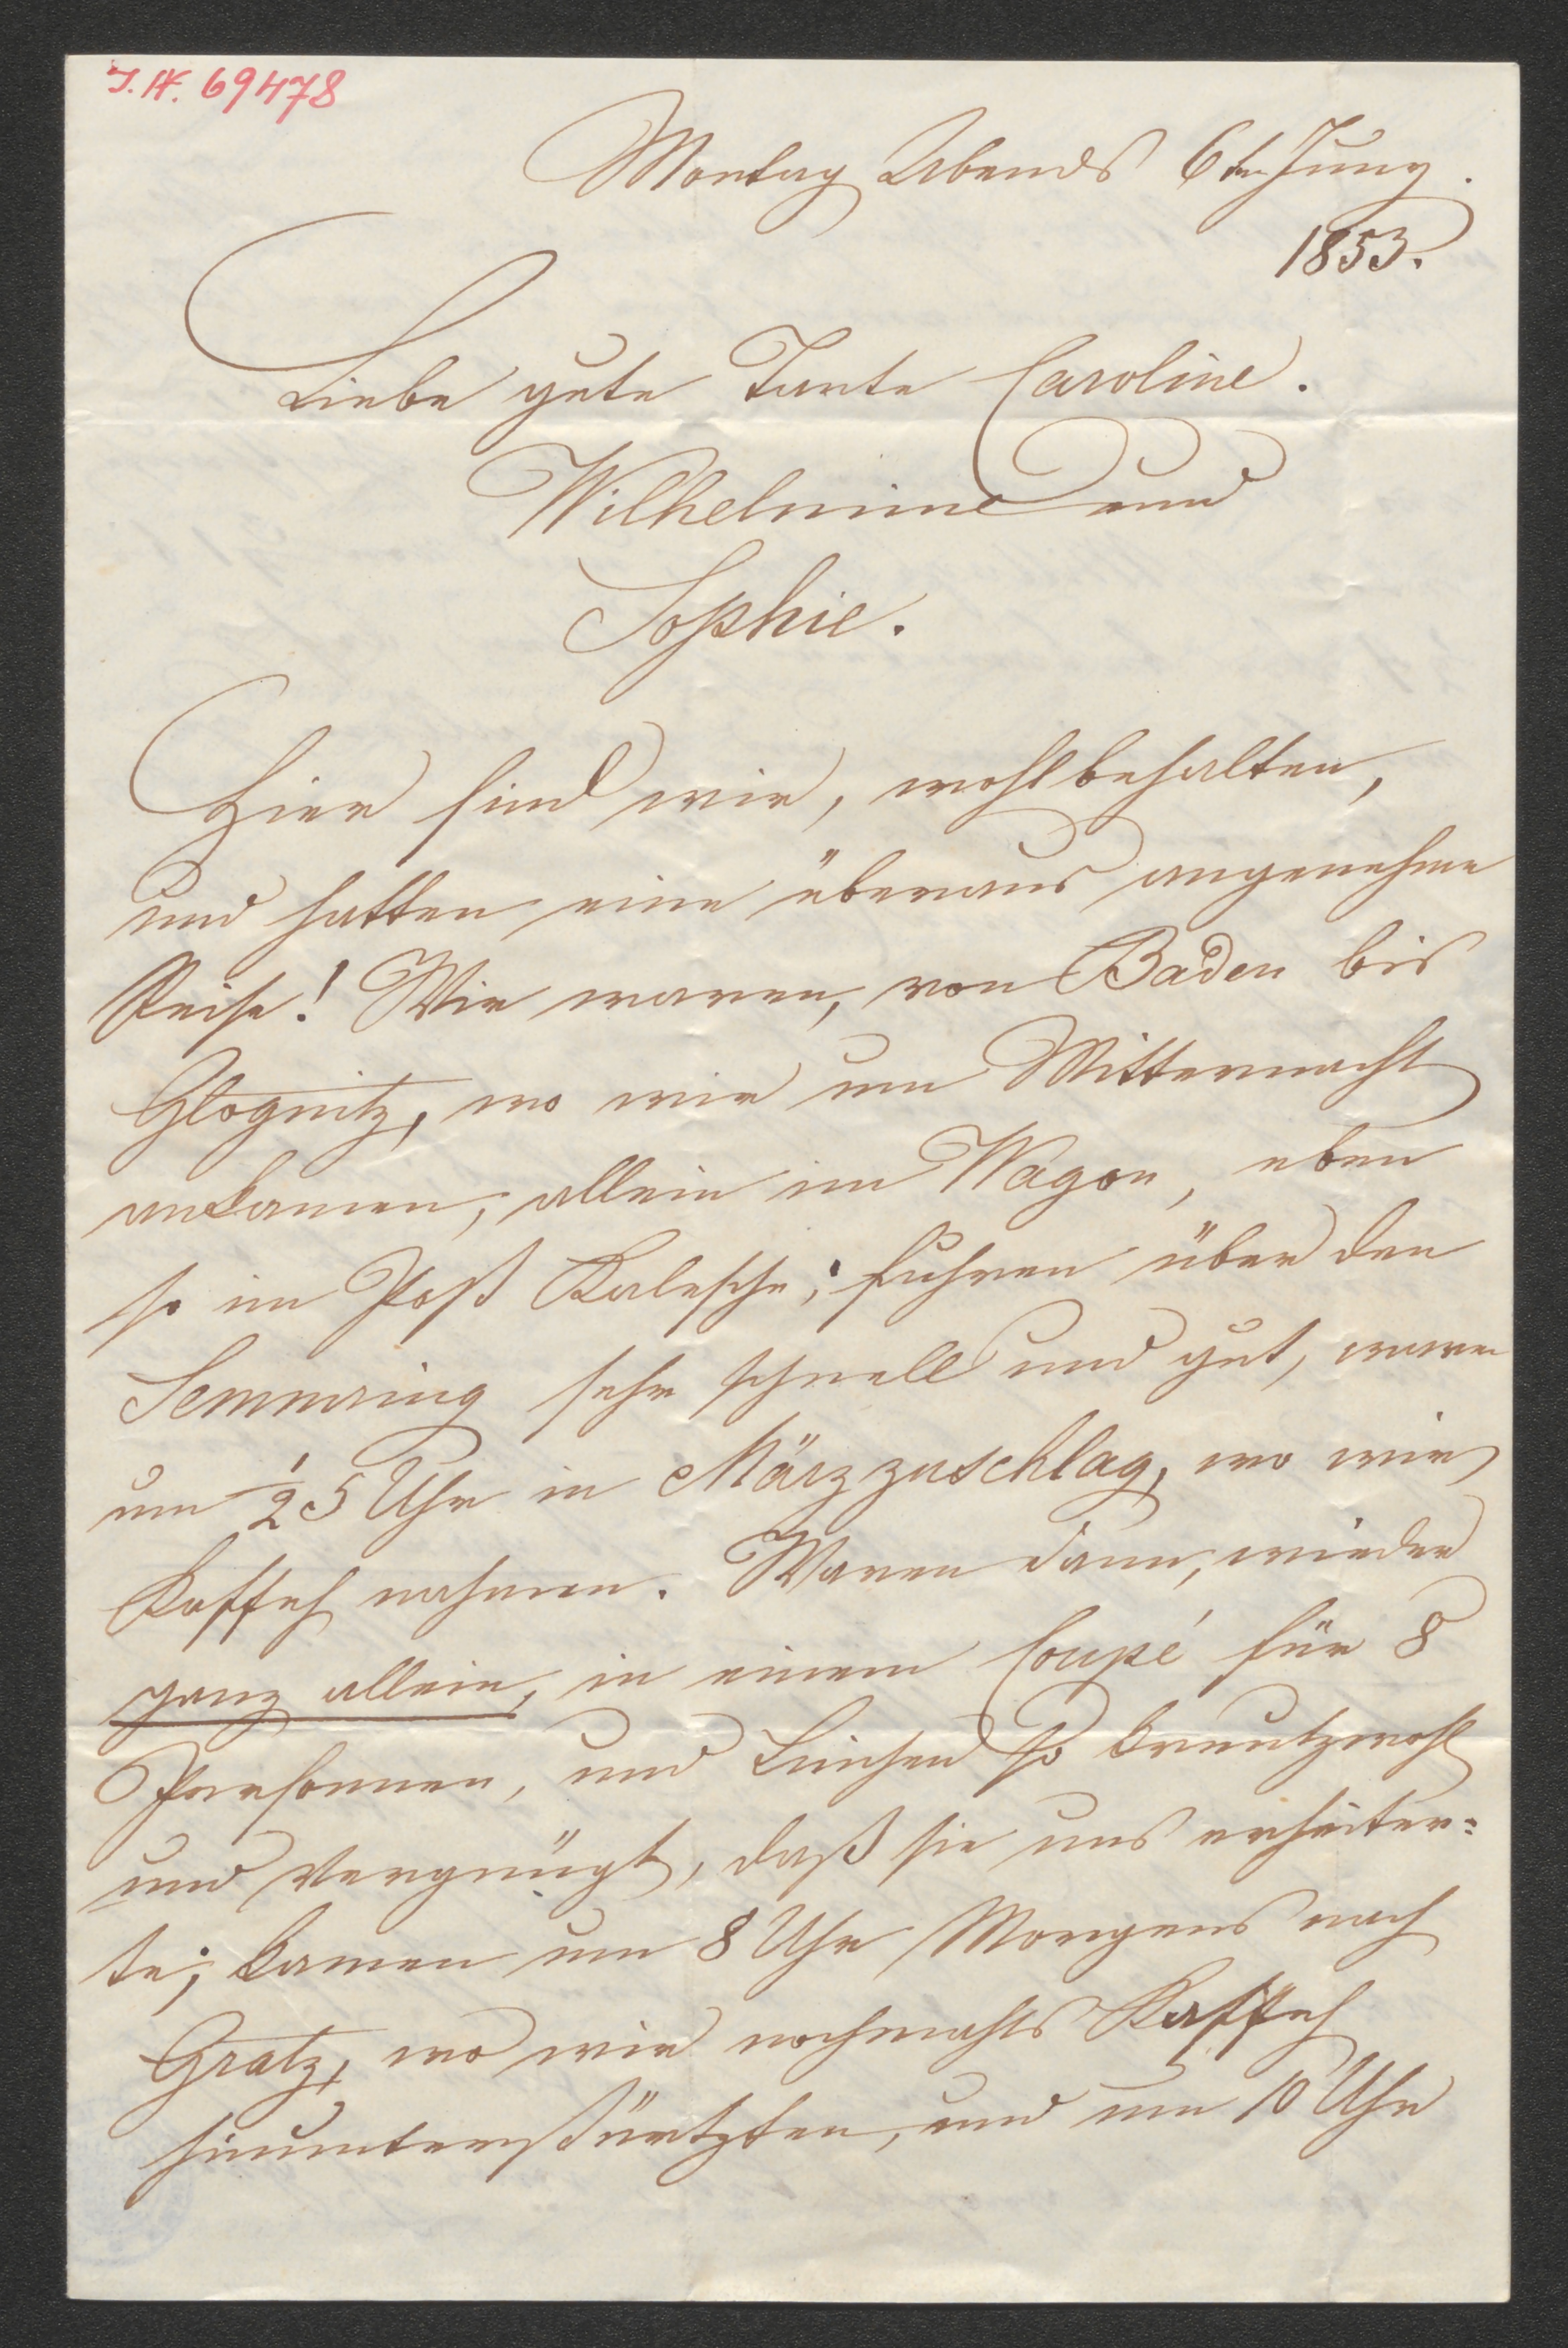 I.N. 69478
Montag Abends 6ten Juny.
1853.
Liebe gute Tante Caroline.
Wilhelmine und
Sophie.
Hier sind wir, wohlbehalten,
und hatten eine überaus angenehme
Reise! Wir waren, von Baden bis
Glognitz, wo wir um Mitternacht
ankamen, allein im Wagon, eben
so im Post Kalesche; fuhren über den
Semmring sehr schnell und gut, waren
um 1/2 5 Uhr in Märzzuschlag, wo wir
Kaffeh nahmen. Waren dann, wieder
ganz allein, in einem Coupé für 8
Personnen, und Linchen so kreutzwohl
und vergnügt, daß sie uns erheiter=
te; kamen um 8 Uhr Morgens nach
Gratz, wo wir nochmahls Kaffeh
hinunterstürtzten, und um 10 Uhr